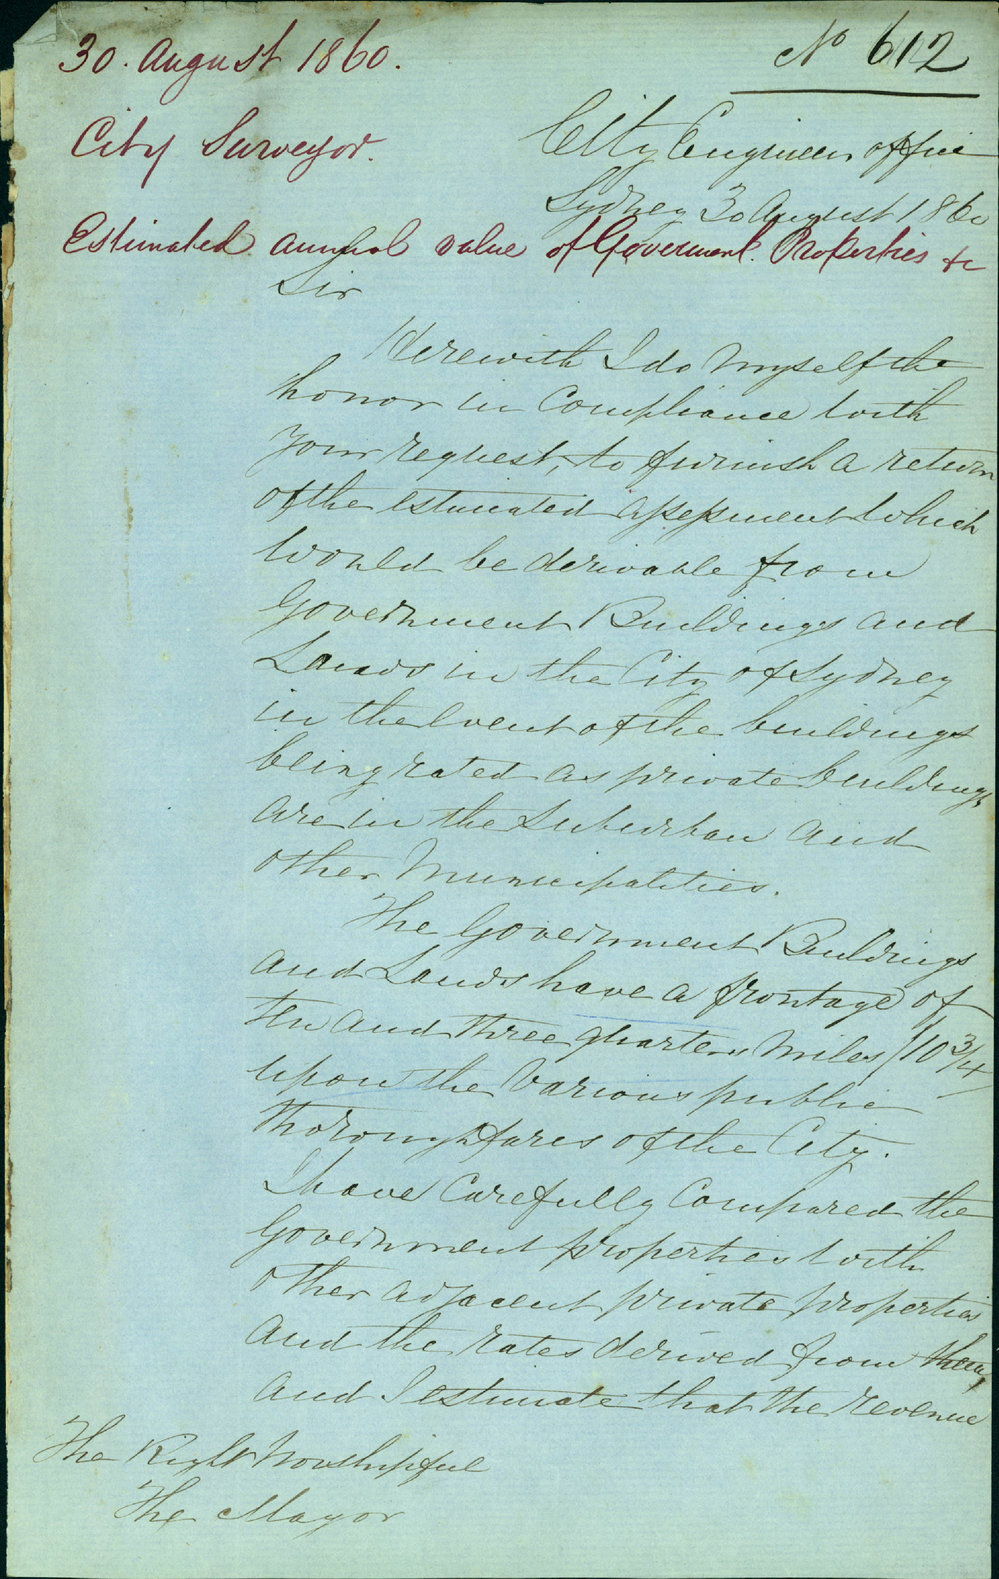 30. August 1860.
No 612
City Surveyor.
City Engineers office
Sydney 30 August 1860
Estimated annual value of Goverment Properties &c
Sir
Herewith I do myself the
honor in compliance with
your request, to furnish a return
of the estimated assessment which
would be derivable from
Government Buildings and
Lands in the City of Sydney
in the event of the buildings
being rated as private buildings
are in the Suburban and
other Municipalities.
The Government Buildings
and Lands have a frontage of
ten and three quarters miles (10 3/4)
upon the various public
thoroughfares of the City.
I have carefully compared the
Government properties with
other adjacent private properties
and the rates derived from them,
and I estimate that the revenue
The Right Worshipful
The Mayor